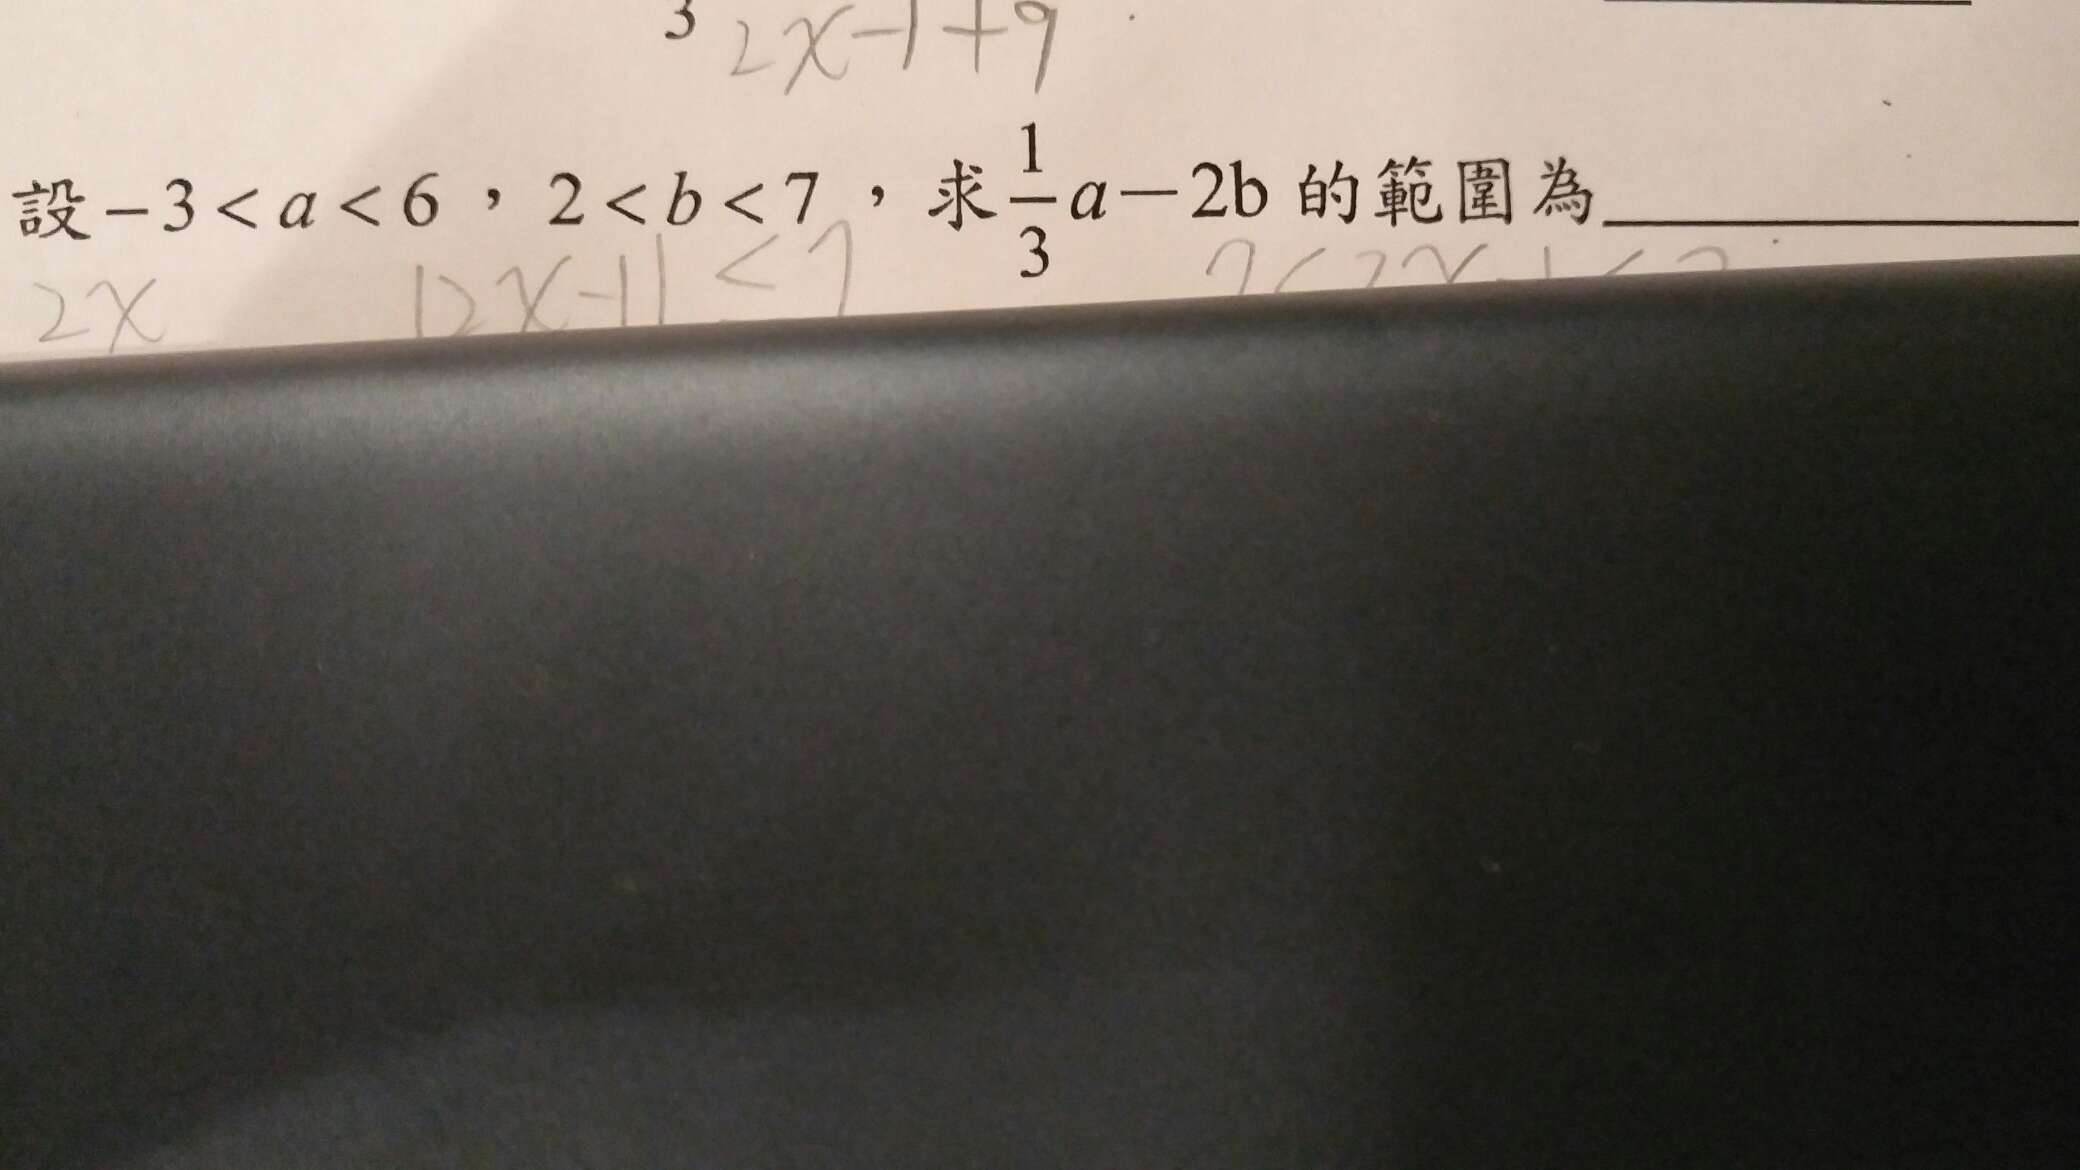 3 2x-1+9
設 -3 < a < 6 , 2 < b < 7 , 求 1/3 a - 2b 的範圍為
2x |2x-1| < 7